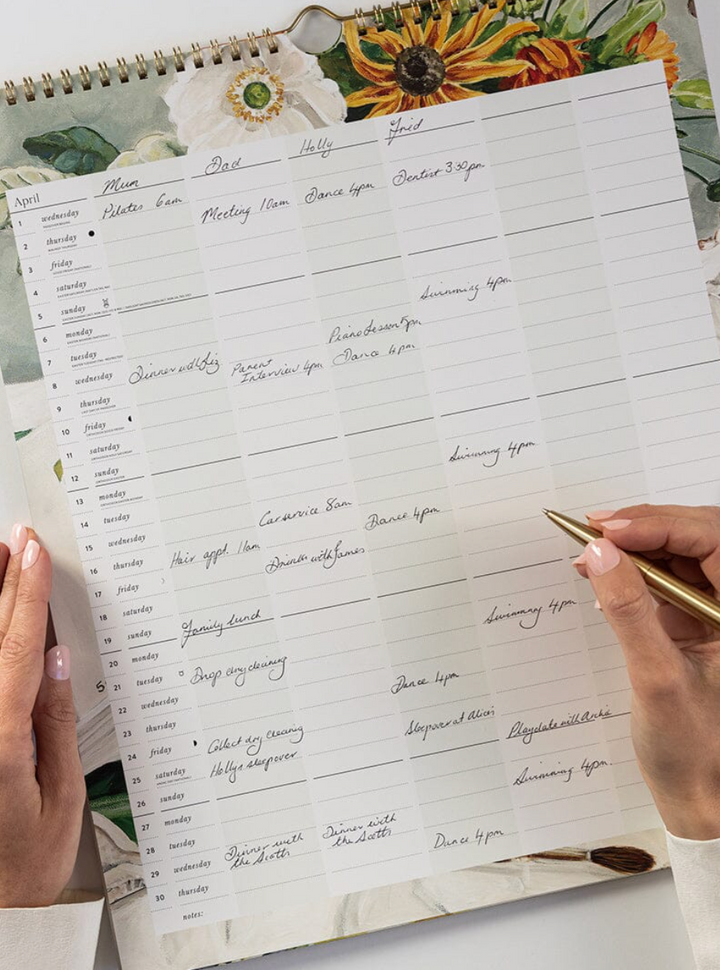 April
Mum
Dad
Holly
Fred
1 wednesday
Pilates 6am
2 thursday
Meeting 10am
Dance 4pm
Dentist 3:30pm
3 friday
4 saturday
5 sunday
6 monday
7 tuesday
Swimming 4pm
8 wednesday
Dinner with Liz
Parent
Interview 4pm
Piano Lesson 5pm
Dance 4pm
9 thursday
10 friday
11 saturday
12 sunday
13 monday
14 tuesday
Swimming 4pm
15 wednesday
Car service 8am
Dance 4pm
16 thursday
Hair appt. 11am
Drinks with James
17 friday
18 saturday
19 sunday
Family lunch
20 monday
21 tuesday
Drop dry cleaning
Swimming 4pm
22 wednesday
Dance 4pm
23 thursday
24 friday
Collect dry cleaning
Sleepover at Alices
Playdate with Archie
25 saturday
Hollys sleepover
26 sunday
27 monday
28 tuesday
Swimming 4pm
29 wednesday
Dinner with
the Scotts
Dinner with
the Scotts
Dance 4pm
30 thursday
notes: